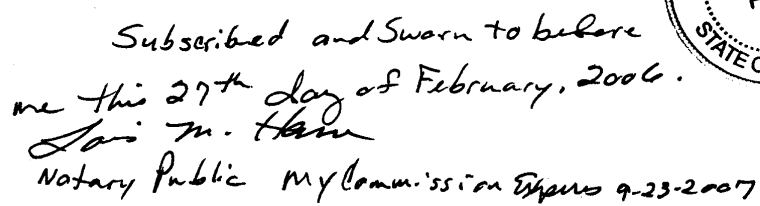 Subscribed and Sworn to before
me this 27th day of February, 2006.
Lois M.
Notary Public My Commission Expires 9-23-2007
STATE O